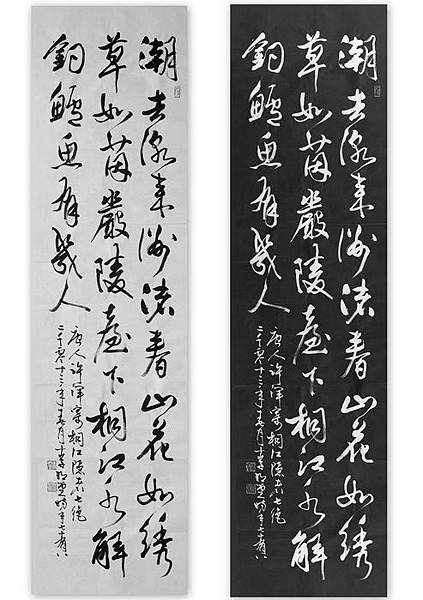 潮去潮来洲渚春山花如绣
草如茵嚴陵臺下桐江水解
釣鱸魚有幾人
唐人許渾寄桐江隱者七绝
二千零十三年春月
潮去潮来洲渚春山花如绣
草如茵嚴陵臺下桐江水解
釣鱸魚有幾人
唐人許渾寄桐江隱者七绝
二千零十三年春月